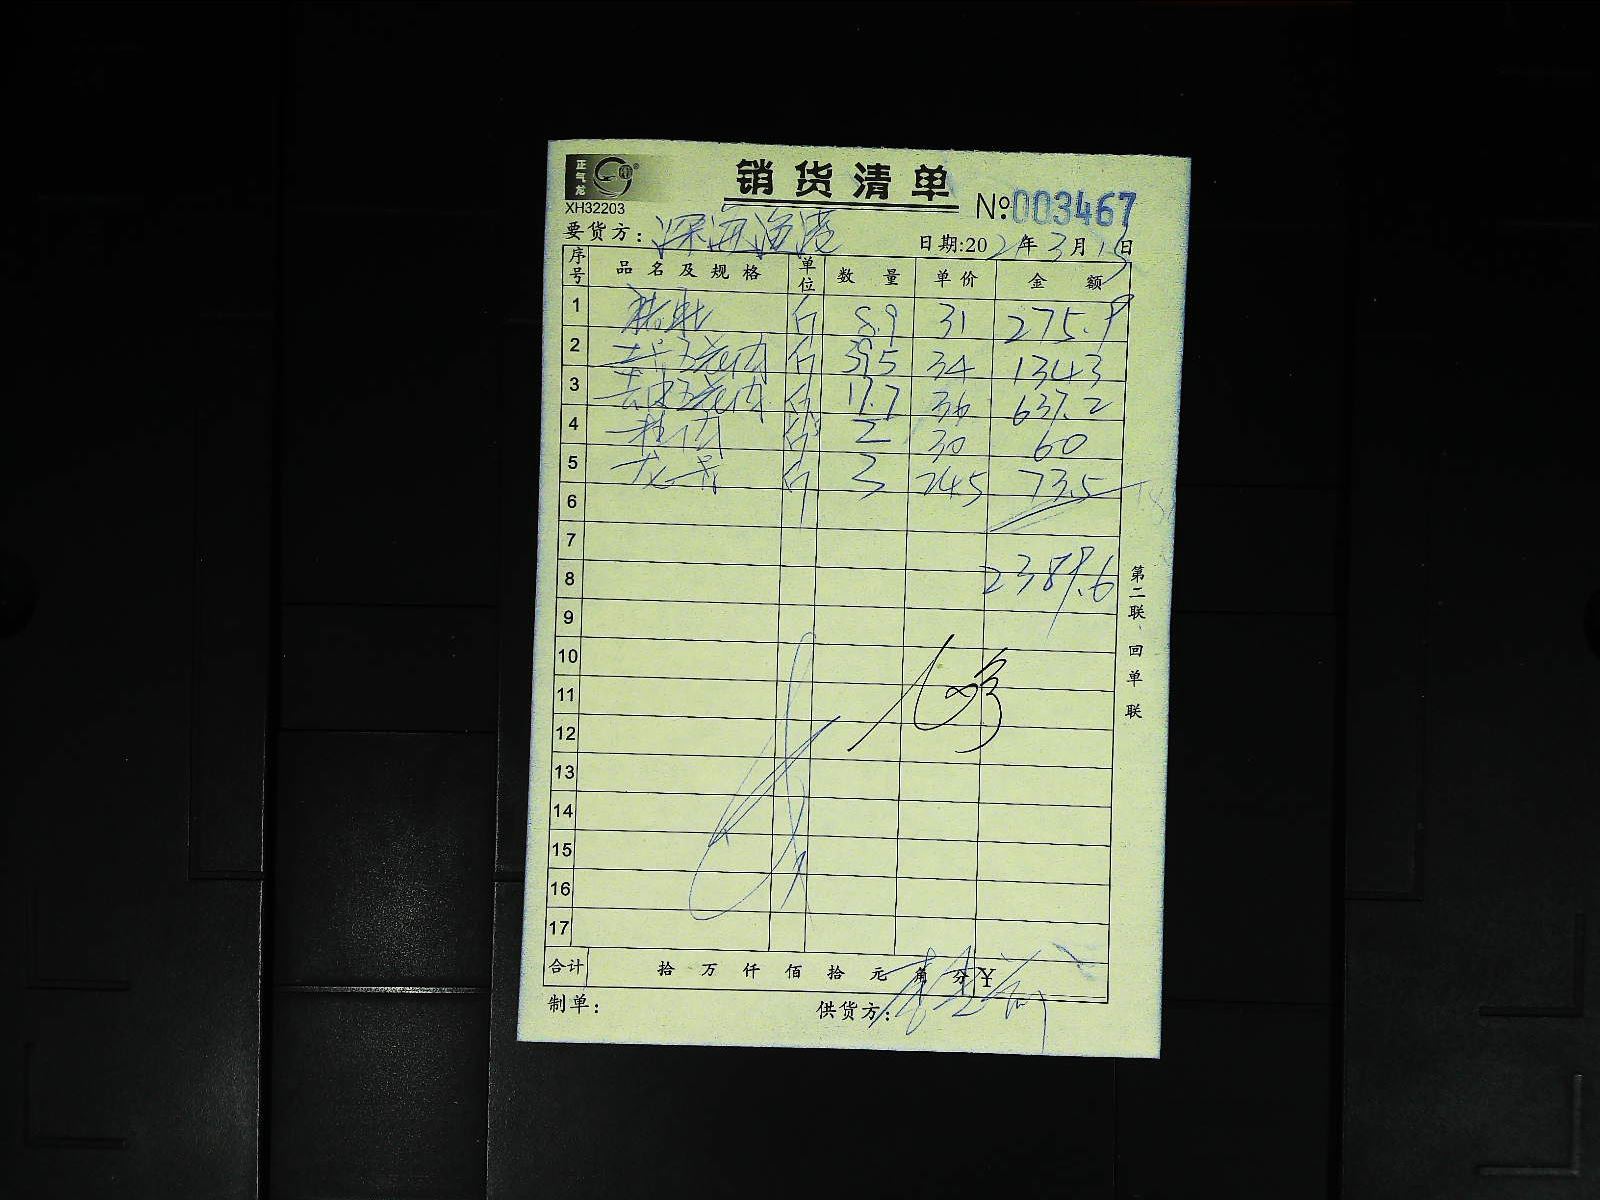 正气龙
XH32203
销货清单
№:003467
要货方: 深海渔港
日期:2021年3月15日
序号 品名及规格 单位 数量 单价 金额
1 斤 8.9 31 275.9
2 五花肉 斤 39.5 34 1343
3 去皮五花肉 斤 17.7 36 637.2
4 斤 2 30 60
5 龙骨 斤 3 24.5 73.5
6
7
8 2389.6
9
10
11
12
13
14
15
16
17
合计 拾 万 仟 佰 拾 元 角 分 ¥
制单: 供货方:
第二联、回单联